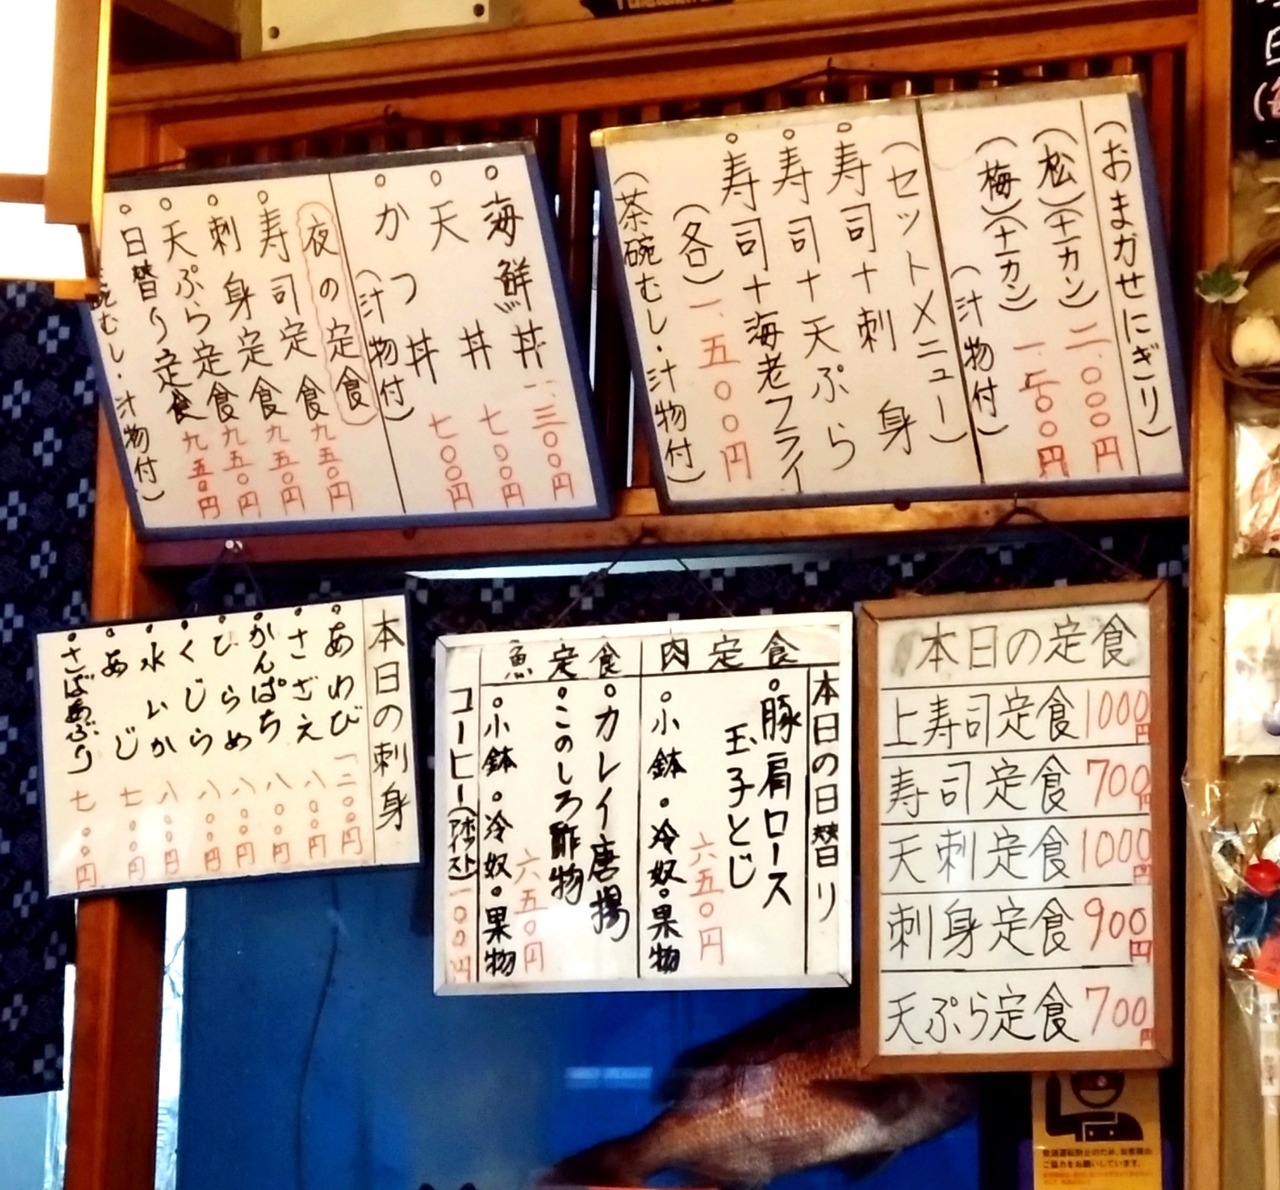 (おまかせにぎり)
(松)(十一カン)二.〇〇〇円
(梅)(十一カン)一.五〇〇円
(汁物付)
(セットメニュー)
。寿司十刺身
。寿司十天ぷら
。寿司十海老フライ
(各)一.五〇〇円
(茶碗むし・汁物付)
。海鮮丼一.三〇〇円
。天丼七〇〇円
。かつ丼七〇〇円
(汁物付)
夜の定食
。寿司定食九五〇円
。刺身定食九五〇円
。天ぷら定食九五〇円
。日替り定食九五〇円
碗むし・汁物付)
本日の刺身
。あわび一二〇〇円
。さざえ八〇〇円
。かんぱち八〇〇円
。ひらめ八〇〇円
。くじら八〇〇円
。水いか八〇〇円
。あじ七〇〇円
。さばあぶり七〇〇円
本日の日替り
肉定食
。豚肩ロース
玉子とじ
六五〇円
。小鉢。冷奴。果物
魚定食
。カレイ唐揚
。このしろ酢物
六五〇円
。小鉢。冷奴。果物
コーヒー(ホット)(アイス)一〇〇円
本日の定食
上寿司定食1000円
寿司定食700円
天刺定食1000円
刺身定食900円
天ぷら定食700円
飲酒運転防止のため、お客様の
ご協力をお願いしています。